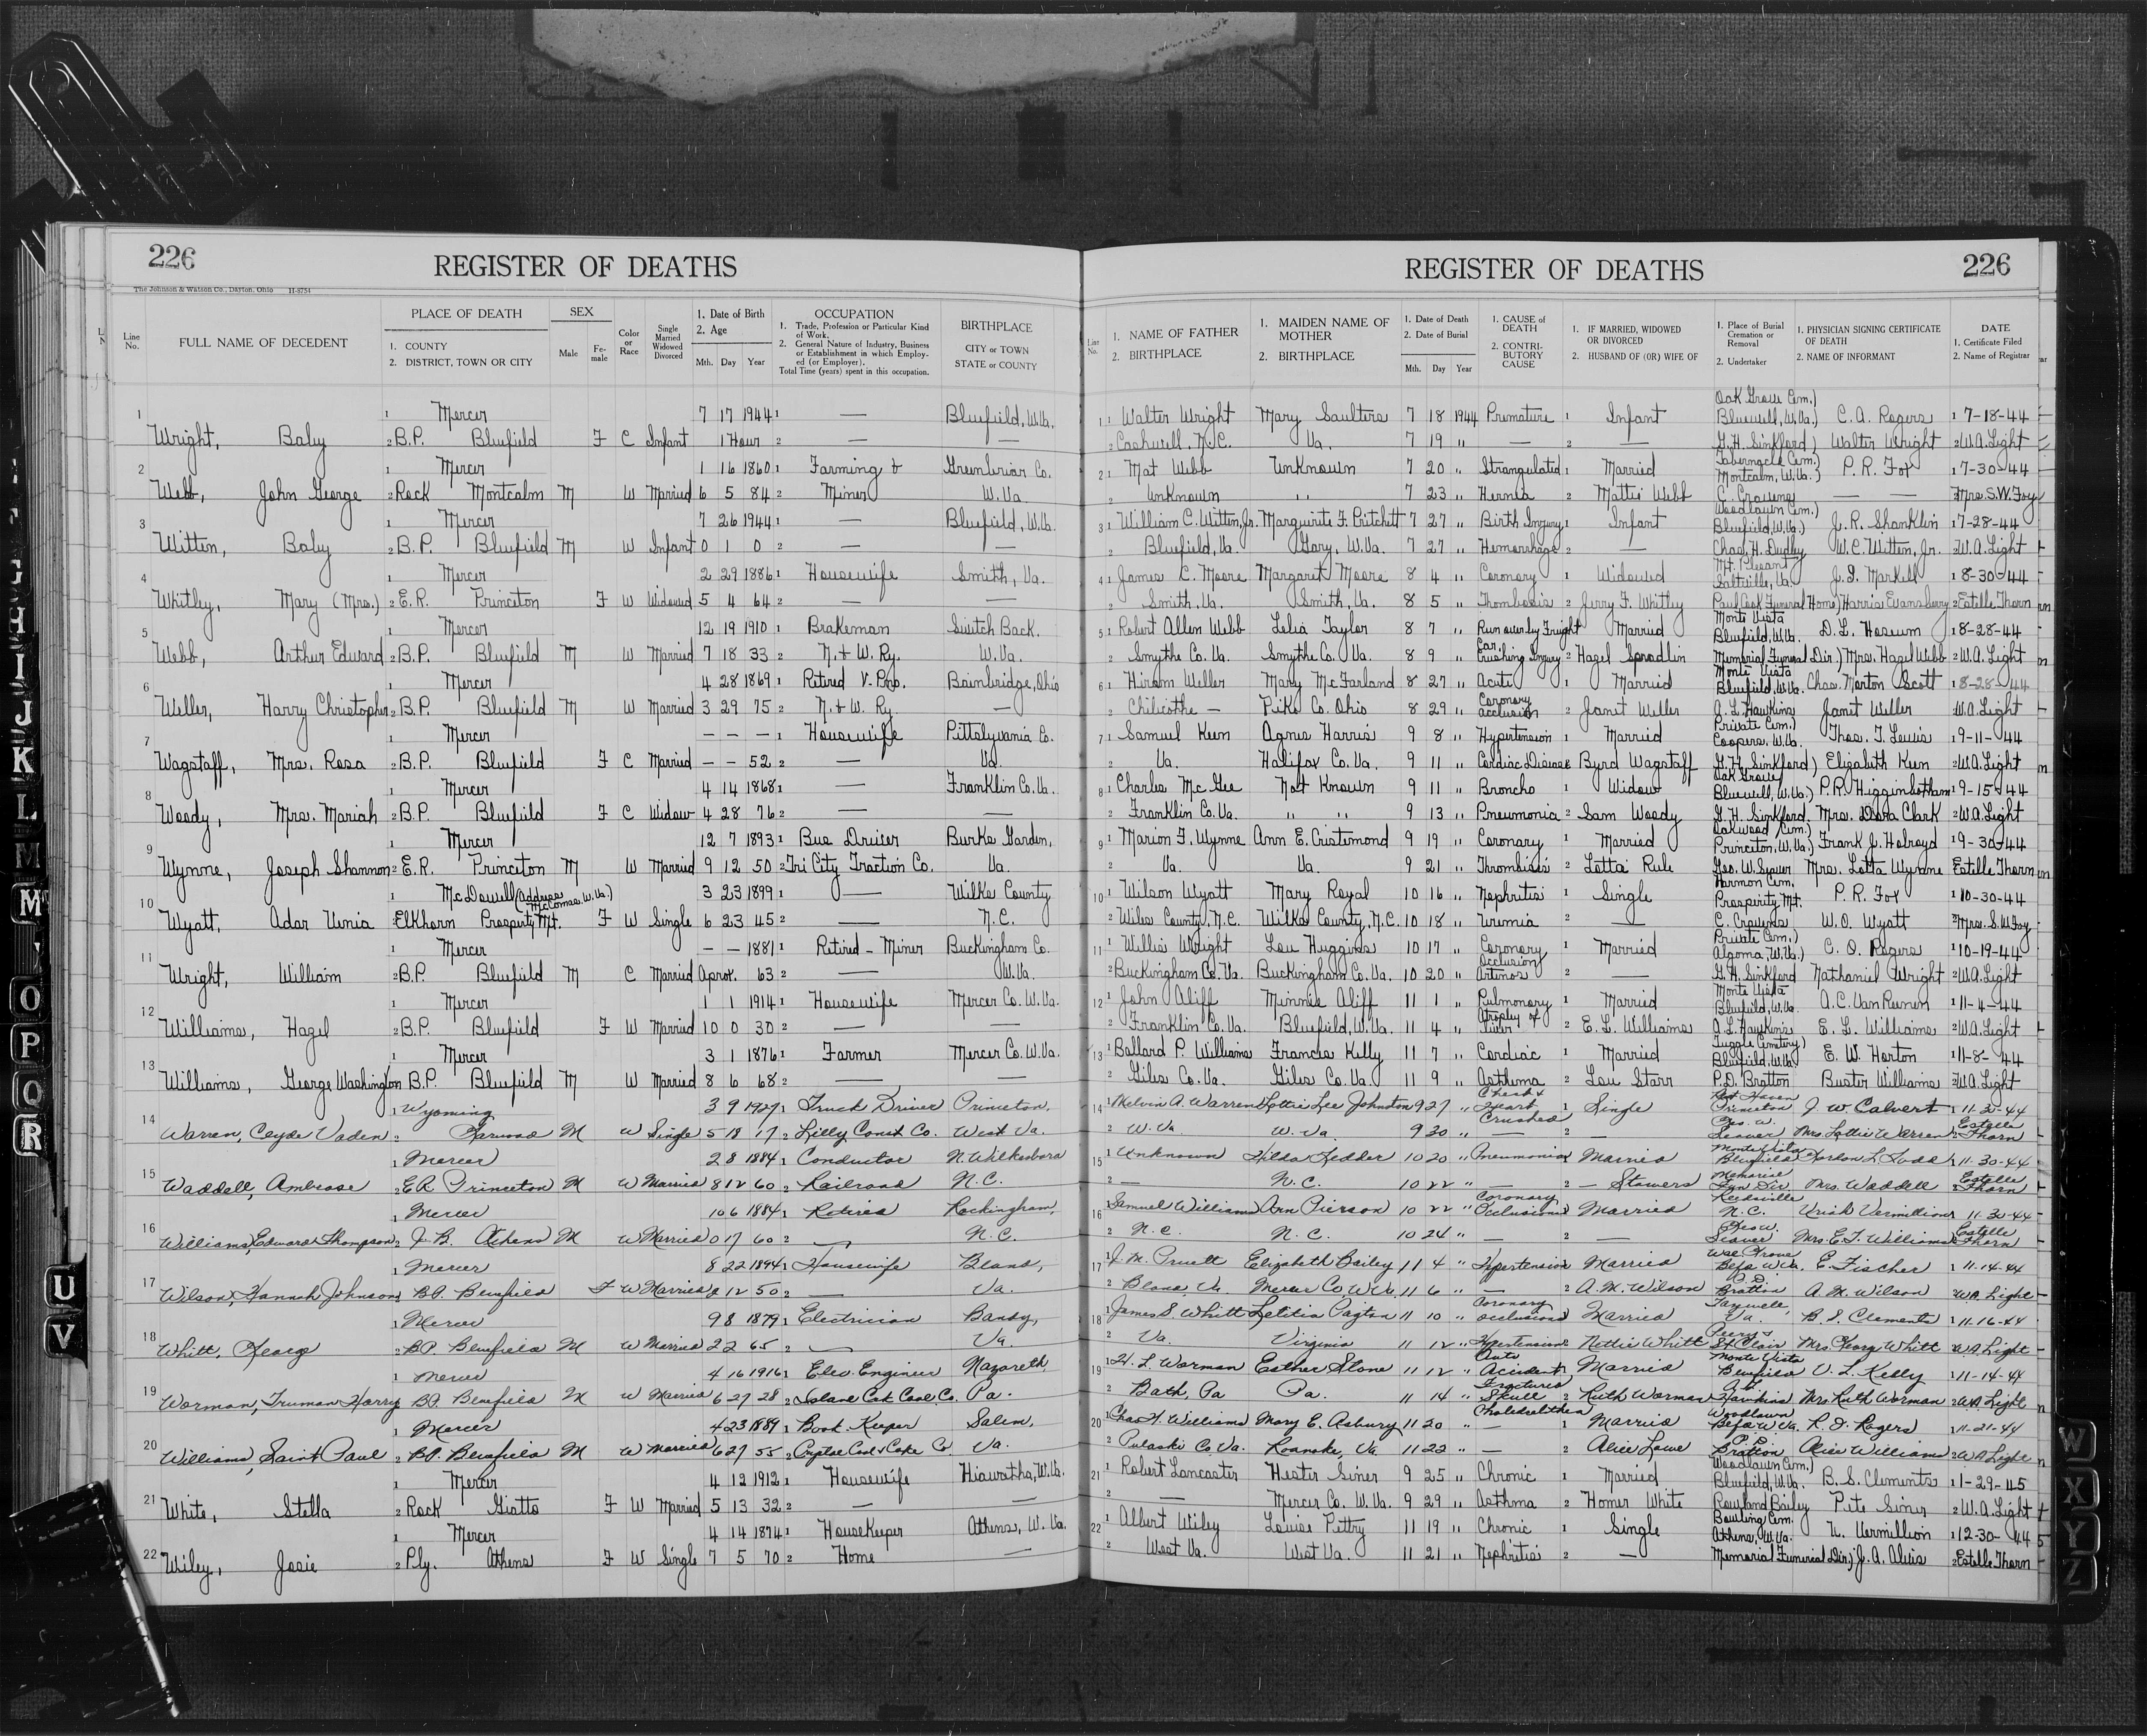 226
REGISTER OF DEATHS
The Johnson & Watson Co., Dayton, Ohio H-8754
Line No. FULL NAME OF DECEDENT PLACE OF DEATH 1. COUNTY 2. DISTRICT, TOWN OR CITY SEX Male Female Color or Race Single Married Widowed Divorced 1. Date of Birth 2. Age Mth. Day Year OCCUPATION 1. Trade, Profession or Particular Kind of Work. 2. General Nature of Industry, Business or Establishment in which Employed (or Employer). Total Time (years) spent in this occupation. BIRTHPLACE CITY or TOWN STATE or COUNTY
1 1 Mercer 7 17 1944 1 — Bluefield, W.Va.
Wright, Baby 2 B.P. Bluefield F C Infant 1 Hour 2 — —
2 1 Mercer 1 16 1860 1 Farming & Greenbriar Co.
Webb, John George 2 Rock Montcalm M W Married 6 5 84 2 Miner W.Va.
3 1 Mercer 7 26 1944 1 — Bluefield, W.Va.
Witten, Baby 2 B.P. Bluefield M W Infant 0 1 0 2 — —
4 1 Mercer 2 29 1886 1 Housewife Smith, Va.
Whitley, Mary (Mrs.) 2 E.R. Princeton F W Widowed 5 4 64 2 — —
5 1 Mercer 12 19 1910 1 Brakeman Switch Back.
Webb, Arthur Edward 2 B.P. Bluefield M W Married 7 18 33 2 N. & W. Ry. W.Va.
6 1 Mercer 4 28 1869 1 Retired V. Pres. Bainbridge, Ohio
Weller, Harry Christopher 2 B.P. Bluefield M W Married 3 29 75 2 N. & W. Ry. —
7 1 Mercer — — — 1 Housewife Pittslyvania Co.
Wagstaff, Mrs. Rosa 2 B.P. Bluefield F C Married — — 52 2 — Va.
8 1 Mercer 4 14 1868 1 Franklin Co. Va.
Woody, Mrs. Mariah 2 B.P. Bluefield F C Widow 4 28 76 2 — —
9 1 Mercer 12 7 1893 1 Bus Driver Burke Garden,
Wynne, Joseph Shannon 2 E.R. Princeton M W Married 9 12 50 2 Tri City Traction Co. Va.
10 1 McDowell (Address McComas, W.Va.) 3 23 1899 1 — Wilkes County
Wyatt, Adar Unia 2 Elkhorn Prosperity Mt. F W Single 6 23 45 2 — N.C.
11 1 Mercer — — 1881 1 Retired - Miner Buckingham Co.
Wright, William 2 B.P. Bluefield M C Married Aprox. 63 2 — W.Va.
12 1 Mercer 1 1 1914 1 Housewife Mercer Co. W.Va.
Williams, Hazel 2 B.P. Bluefield F W Married 10 0 30 2 — —
13 1 Mercer 3 1 1876 1 Farmer Mercer Co. W.Va.
Williams, George Washington B.P. Bluefield M W Married 8 6 68 2 — —
14 1 Wyoming 3 9 1927 1 Truck Driver Princeton,
Warren, Clyde Vaden 2 M W Single 5 18 17 2 Lilly Const Co. West Va.
15 1 Mercer 2 8 1884 1 Conductor N. Wilkesboro
Waddell, Ambrose 2 E R Princeton M W Married 8 12 60 2 Railroad N.C.
16 1 Mercer 10 6 1884 1 Retired Rockingham,
Williams, Edward Thompson 2 J.B. Athens M W Married 0 17 60 2 — N.C.
17 1 Mercer 8 22 1894 1 Housewife Bland,
Wilson, Hannah Johnson 2 B.P. Bluefield F W Married 2 12 50 2 — Va.
18 1 Mercer 9 8 1879 1 Electrician Bandy,
Whitt, George 2 B.P. Bluefield M W Married 2 2 65 2 — Va.
19 1 Mercer 4 16 1916 1 Elec. Engineer Nazareth,
Worman, Truman Harry B.P. Bluefield M W Married 6 27 28 2 Coal Co. Pa.
20 1 Mercer 4 23 1889 1 Book Keeper Salem,
Williams, Saint Paul 2 B.P. Bluefield M W Married 6 27 55 2 Coal & Coke Co Va.
21 1 Mercer 4 12 1912 1 Housewife Hiawatha, W.Va.
White, Stella 2 Rock Giatto F W Married 5 13 32 2 — —
22 1 Mercer 4 14 1874 1 HouseKeeper Athens, W. Va.
Wiley, Josie 2 Ply. Athens F W Single 7 5 70 2 Home —
REGISTER OF DEATHS
226
Line No. 1. NAME OF FATHER 2. BIRTHPLACE 1. MAIDEN NAME OF MOTHER 2. BIRTHPLACE 1. Date of Death 2. Date of Burial Mth. Day Year 1. CAUSE of DEATH 2. CONTRIBUTORY CAUSE 1. IF MARRIED, WIDOWED OR DIVORCED 2. HUSBAND OF (OR) WIFE OF 1. Place of Burial Cremation or Removal 2. Undertaker 1. PHYSICIAN SIGNING CERTIFICATE OF DEATH 2. NAME OF INFORMANT DATE 1. Certificate Filed 2. Name of Registrar
1 1 Walter Wright Mary Saulters 7 18 1944 Premature 1 Infant Oak Grove Cem.) Bluewell, W.Va.) C. A. Rogers 1 7-18-44
2 N.C. Va. 7 19 " — 2 — G.H. Sinkford) Walter Wright 2 W.A. Light
2 1 Mat Webb Unknown 7 20 " Strangulated 1 Married Tabernacle Cem.) Montcalm, W.Va.) P. R. Fox 1 7-30-44
2 Unknown " 7 23 " Hernia 2 Mattie Webb C. Cravens — — 2 Mrs. S.W. Foy
3 1 William C. Witten, Jr. Marguerite F. Pritchett 7 27 " Birth Injury 1 Infant Woodlawn Cem.) Bluefield, W.Va.) J. R. Shanklin 1 7-28-44
2 Bluefield, Va. Gary, W.Va. 7 27 " Hemorrhage 2 — Chas. H. Dudley W. C. Witten, Jr. 2 W.A. Light
4 1 James C. Moore Margaret Moore 8 4 " Coronary 1 Widowed Mt. Pleasant Saltville, Va J. I. Markell 1 8-30-44
2 Smith, Va. Smith, Va. 8 5 " Thombosis 2 Jerry F. Whitley Paul Cook Funeral Home) Harris Evansberry 2 Estelle Thorn
5 1 Robert Allen Webb Lelia Taylor 8 7 " Run over by Freight Car. Married Monte Vista Bluefield, W.Va. D. L. Hoseum 1 8-28-44
2 Smythe Co. Va. Smythe Co. Va. 8 9 " Crushing Injury 2 Hazel Spradlin Memorial Funeral Dir.) Mrs. Hazel Webb 2 W.A. Light
6 1 Hiram Weller Mary McFarland 8 27 " Acute 1 Married Monte Vista Bluefield, W.Va. Chas. Morton Scott 1 8-28-44
2 Chilicothe — Pike Co. Ohio 8 29 " Coronary occlusion 2 Janet Weller A. L. Hawkins Janet Weller W.A. Light
7 1 Samuel Keen Agnes Harris 9 8 " Hypertension 1 Married Private Cem.) Coopers, W.Va. Thos. T. Lewis 1 9-11-44
2 Va. Halifax Co. Va. 9 11 " Cardiac Disease Byrd Wagstaff G.H. Sinkford) Elizabeth Keen 2 W.A. Light
8 1 Charles McGee Not Known 9 11 " Broncho 1 Widow Oak Grove Bluewell, W.Va.) P.R. Higginbotham 1 9-15-44
2 Franklin Co. Va. " " 9 13 " Pneumonia 2 Sam Woody G.H. Sinkford. Mrs. Dora Clark 2 W.A. Light
9 1 Marion F. Wynne Ann E. Cristemond 9 19 " Coronary 1 Married Oakwood Cem.) Princeton, W.Va.) Frank J. Holroyd 1 9-30-44
2 Va. Va. 9 21 " Thrombosis 2 Lotta Rule Geo. W. Seaver Mrs. Lotta Wynne Estelle Thorn
10 1 Wilson Wyatt Mary Royal 10 16 " Nephritis 1 Single Harmon Cem. Prosperity Mt. P. R. Fox 1 10-30-44
2 Wiles County, N.C. Wilks County, N.C. 10 18 " Uremia 2 — C. Cravens W. O. Wyatt 2 Mrs. S.W. Foy
11 1 Willis Wright Lou Huggins 10 17 " Coronary Occlusion 1 Married Private Cem.) Algoma, W.Va.) C. O. Rogers 1 10-19-44
2 Buckingham Co. Va. Buckingham Co. Va. 10 20 " 2 — G.H. Sinkford Nathaniel Wright 2 W.A. Light
12 1 John Aliff Minnie Aliff 11 1 " Pulmonary 1 Married Monte Vista Bluefield, W.Va. A.C. Van Reenen 1 11-4-44
2 Franklin Co. Va. Bluefield, W.Va. 11 4 " Atrophy of Liver 2 E. L. Williams A.L. Hawkins E. L. Williams 2 W.A. Light
13 1 Ballard P. Williams Francis Kelly 11 7 " Cardiac 1 Married Tuggle Cemetery) Bluefield, W.Va.) E. W. Horton 1 11-8-44
2 Giles Co. Va. Giles Co. Va. 11 9 " Asthma 2 Lou Starr P.D. Bratton Buster Williams 2 W.A. Light
14 1 Melvin A. Warren Lottie Lee Johnston 9 27 " Chest & Heart Crushed 1 Single Rest Haven Princeton J. W. Calvert 1 11-30-44
2 W. Va W. Va. 9 30 " — 2 — Geo. W. Seaver Mrs Lottie Warren 2 Estelle Thorn
15 1 Unknown Hilda 10 20 " Pneumonia Married Monte Vista Bluefield L. Todd 1 11-30-44
2 — N.C. 10 22 " — 2 — Stowers Memorial Fun Dir Mrs. Waddell 2 Estelle Thorn
16 1 Samuel Williams Ann Pierson 10 22 " Coronary Occlusion Married Reedsville N.C. Uriah Vermillion 11-30-44
2 N.C. N.C. 10 24 " — 2 — Geo W. Seaver Mrs. E. T. Williams 2 Estelle Thorn
17 1 J. M. Pruett Elizabeth Bailey 11 4 " Hypertension Married Grove E. Fischer 1 11-14-44
2 Bland Va Mercer Co, W.Va. 11 6 " — 2 A. M. Wilson P.D. Bratton A. M. Wilson W.A. Light
18 1 James S. Whitt Letitia Payton 11 10 " Coronary occlusion Married Tazwell, Va. B. S. Clements 1 11-16-44
2 Va. Virginia 11 12 " Hypertension 2 Nettie Whitt St Clair Mrs George Whitt W.A. Light
19 1 H. L. Worman Esther Stone 11 12 " Auto Acident Married Monte Vista Bluefield V. L. Kelly 1 11-14-44
2 Bath, Pa Pa. 11 14 " Fractured Skull 2 Ruth Worman A.L. Hawkins Mrs Ruth Worman 2 W.A. Light
20 1 Chas. H. Williams Mary E. Asbury 11 20 " 1 Married Woodlawn W.Va. R. O. Rogers 1 11-21-44
2 Pulaski Co Va. Roanoke, Va 11 22 " — 2 Alice Lowe P.D. Bratton Alice Williams 2 W.A. Light
21 1 Robert Lancaster Hester Siner 9 25 " Chronic 1 Married Woodlawn Cem.) Bluefield, W.Va. B. S. Clements 1 1-29-45
2 — Mercer Co. W.Va. 9 29 " Asthma 2 Homer White Rowland Bailey Pete Siner 2 W.A. Light
22 1 Albert Wiley Louise Pettry 11 19 " Chronic 1 Single Bowling Cem. Athens, W.Va. U. Vermillion 1 12-30-44
2 West Va. West Va. 11 21 " Nephritis 2 — Memorial Funeral Dir.) J. A. 2 Estelle Thorn
H
I
J
K
L
M
O
P
Q
R
U
V
W
X
Y
Z